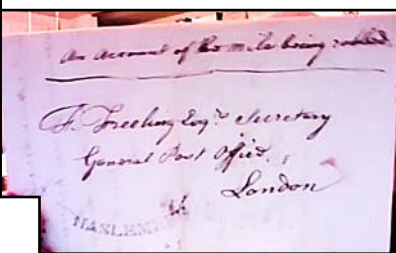 An account of the mile being robbed
F. Freeling Esqr. Secretary
General Post Office,
London
HASLEM